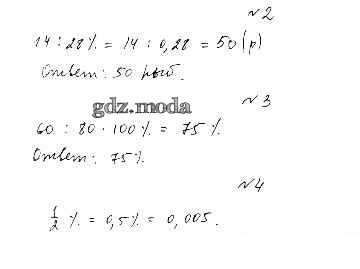 №2
14 : 28% = 14 : 0,28 = 50 (р)
Ответ: 50
gdz.moda
№3
60 : 80 · 100% = 75%
Ответ: 75%
№4
1/2 % = 0,5% = 0,005.